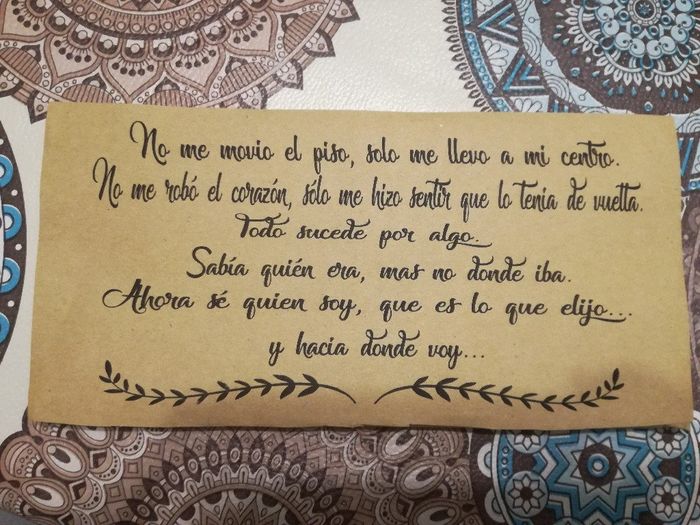 No me movio el piso, solo me llevo a mi centro.
No me robó el corazón, sólo me hizo sentir que lo tenia de vuelta.
Todo sucede por algo..
Sabía quién era, mas no donde iba.
Ahora sé quien soy, que es lo que elijo...
y hacia donde voy...